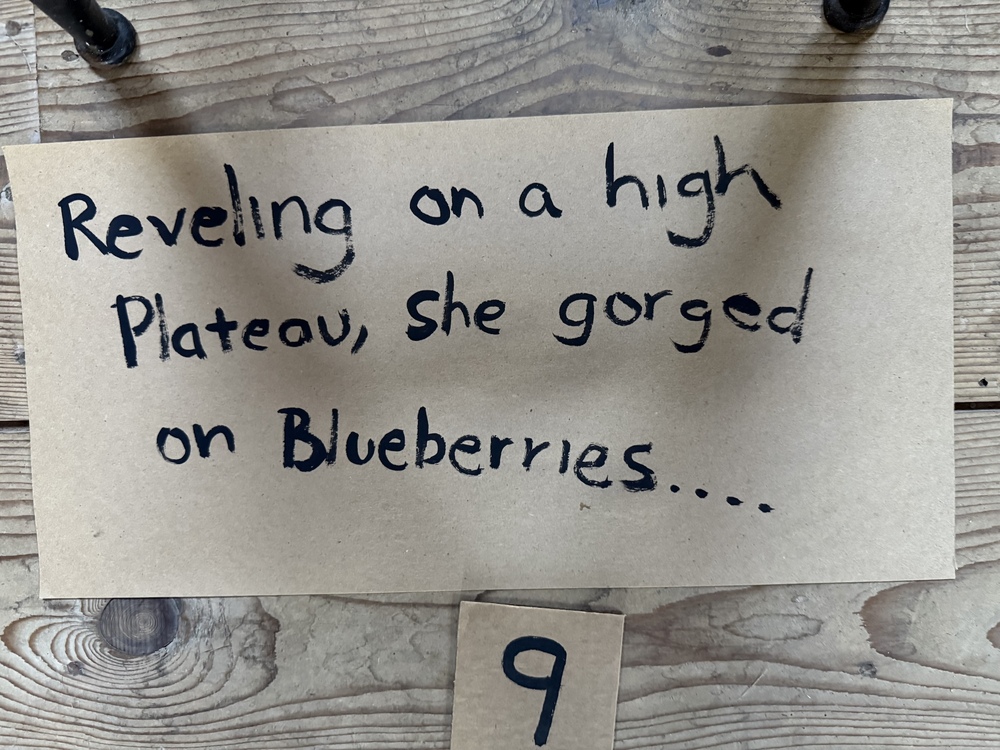 Reveling on a high
Plateau, she gorged
on Blueberries....
9